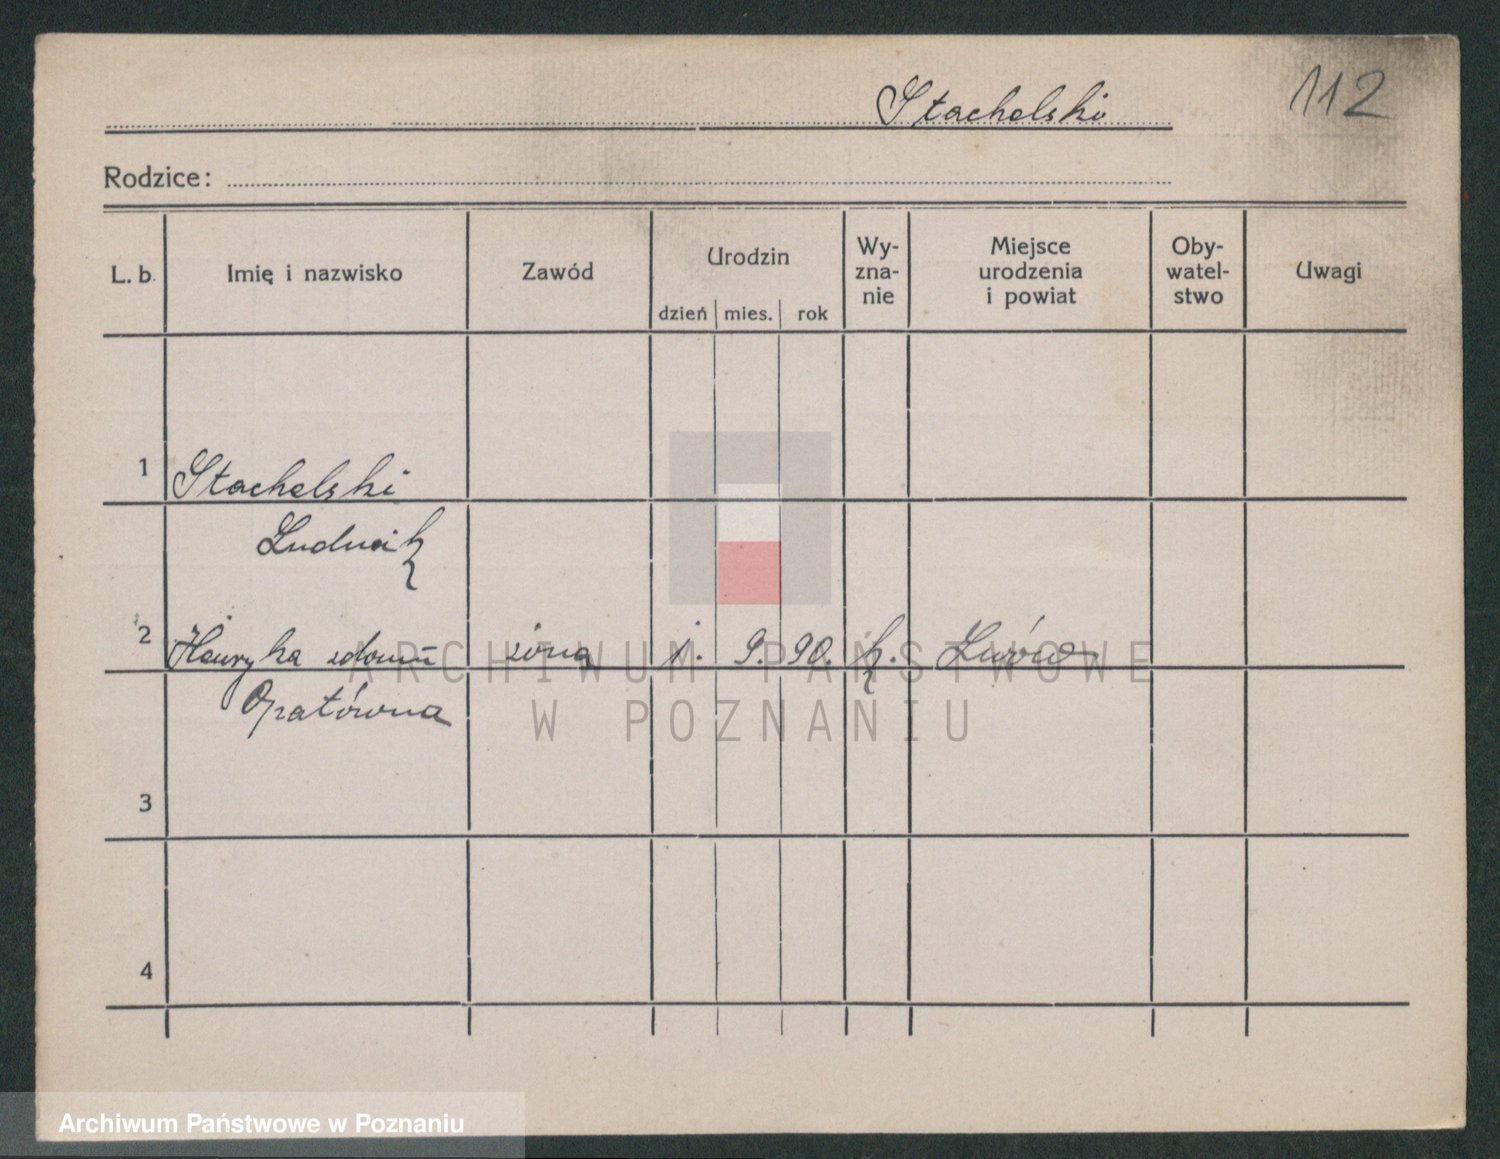 Stachelski 112
Rodzice:
L. b. Imię i nazwisko Zawód Urodzin dzień mies. rok Wy-zna-nie Miejsce urodzenia i powiat Oby-watel-stwo Uwagi
1 Stachelski
Ludwik
2 Henryka zdomu żona 1. 9. 90. k. Lwów
Opatówna
3
4
ARCHIWUM PAŃSTWOWE
W POZNANIU
Archiwum Państwowe w Poznaniu